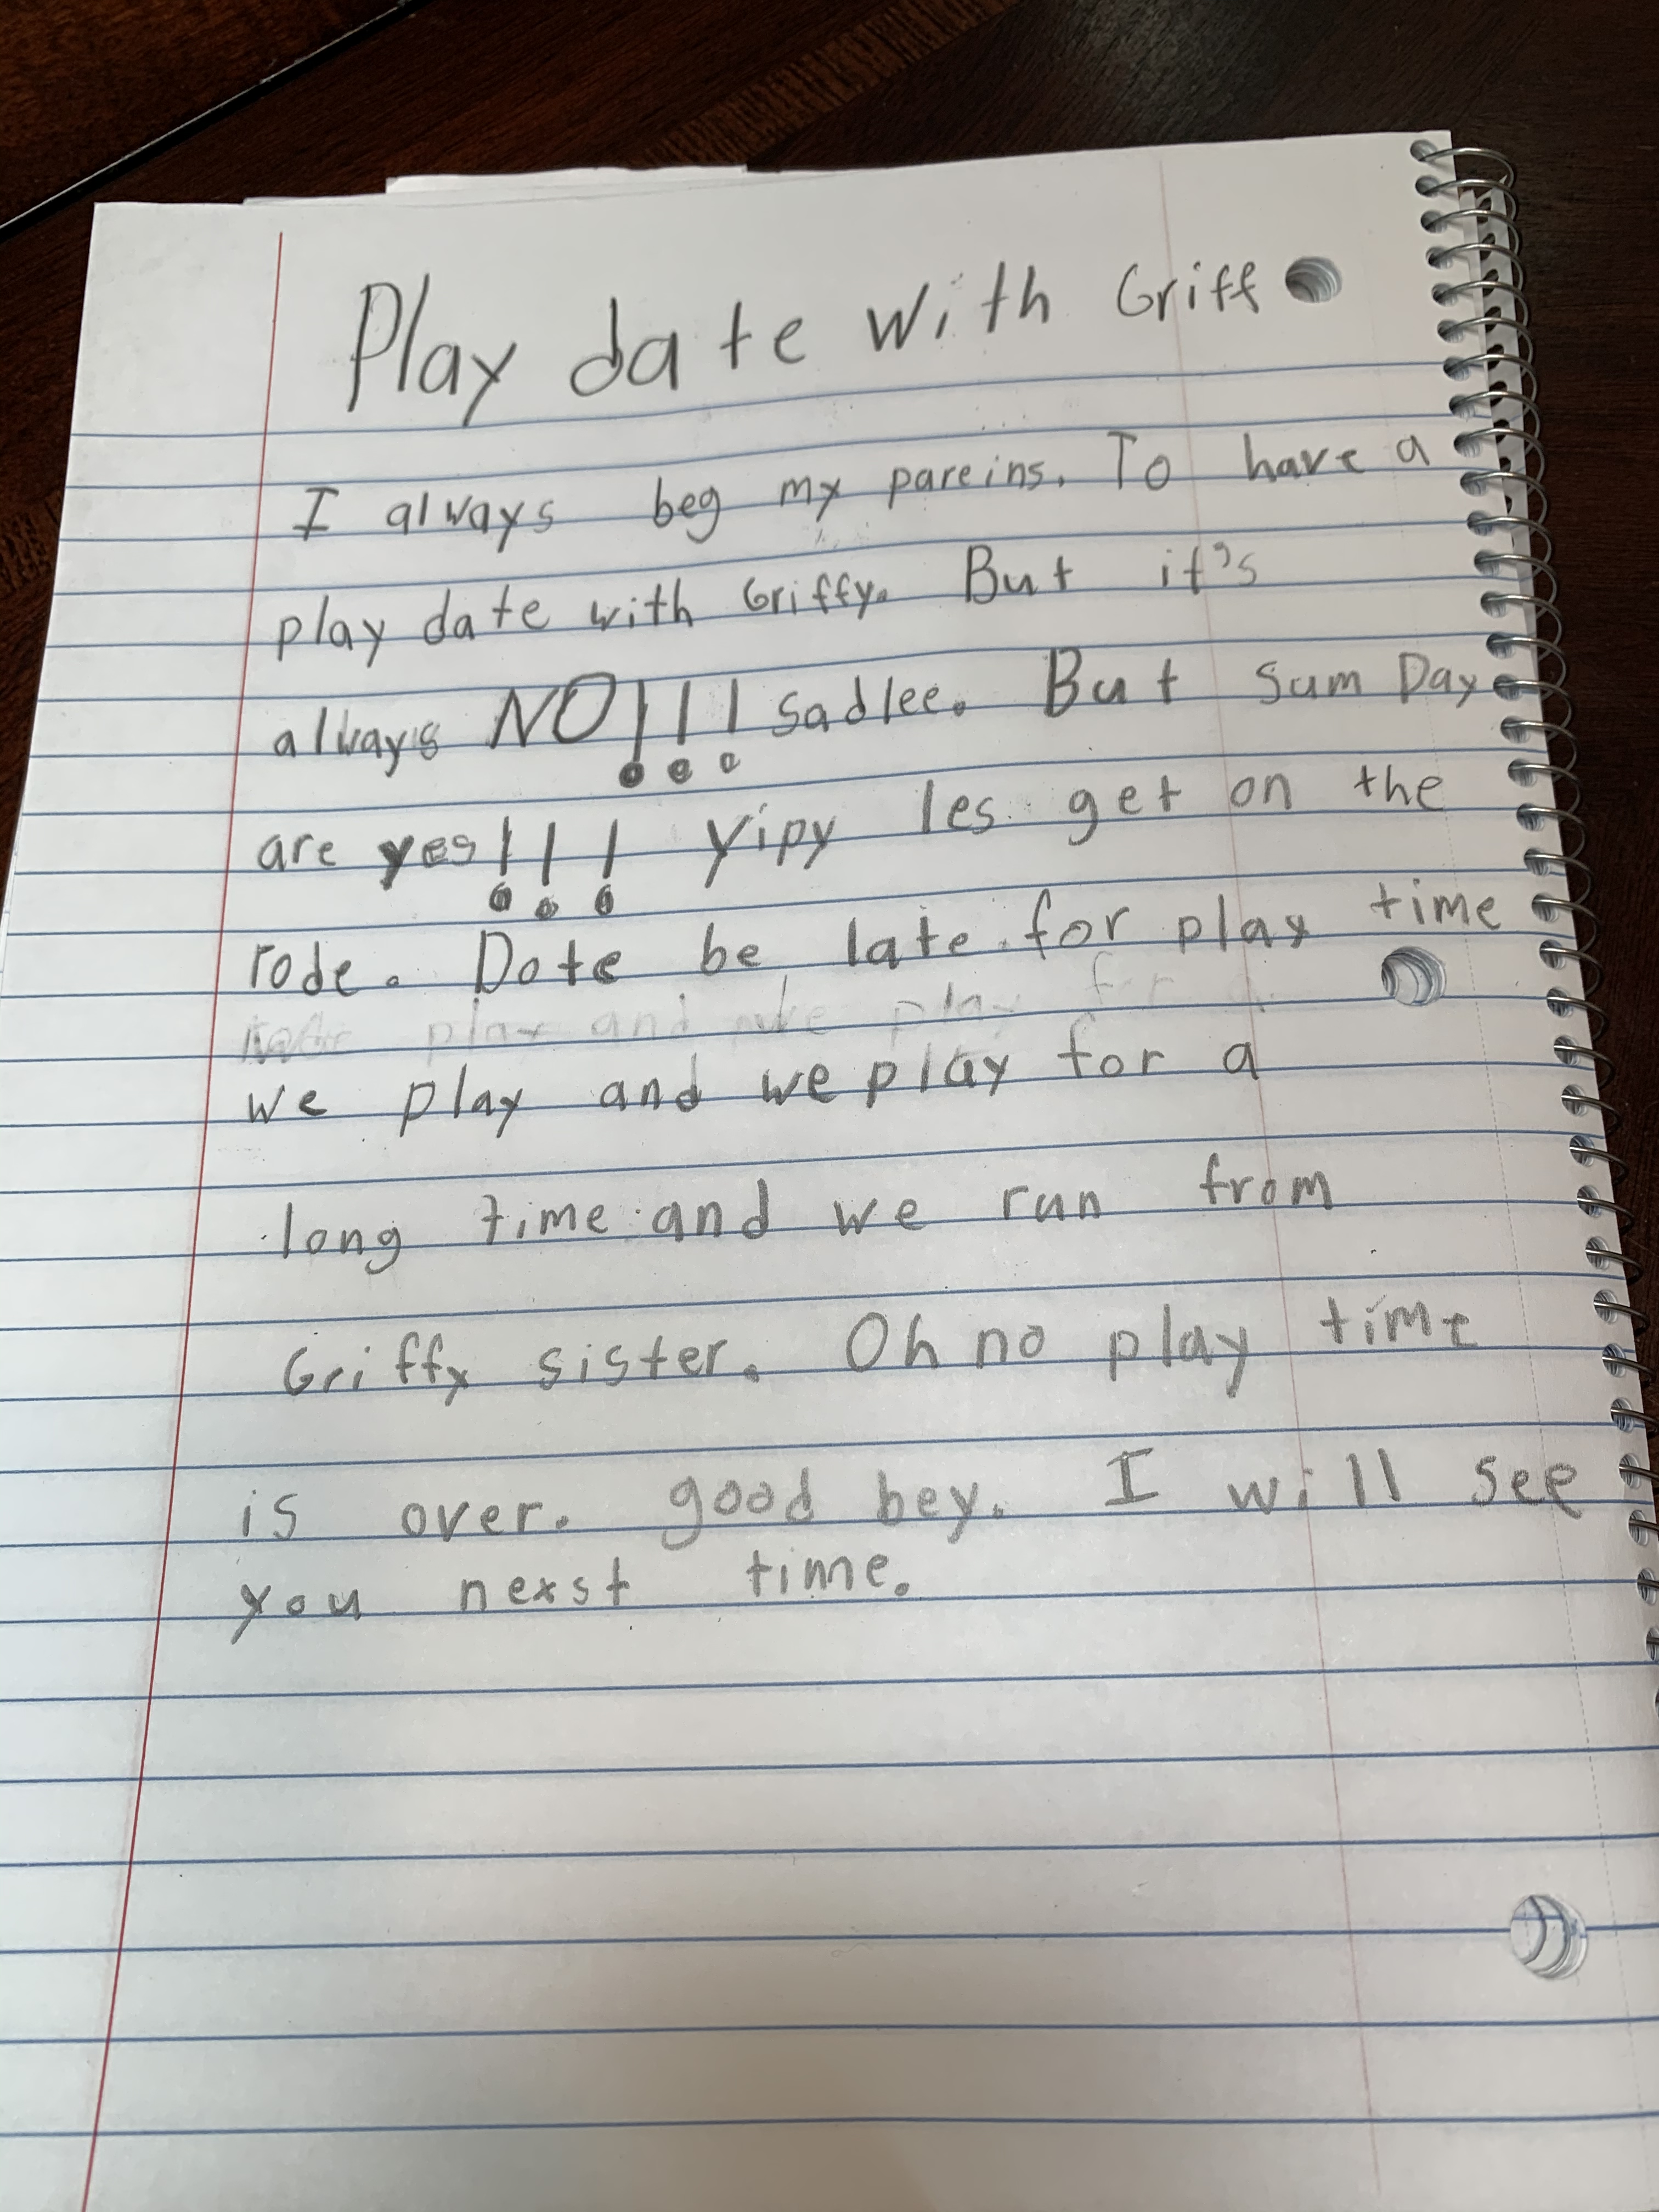 Play date with Griff
I always beg my pareins. To have a
play date with Griffy. But it's
always NO!!! sadlee. But sum Day
are yes!!! Yipy les get on the
rode. Dote be late for play time
play and we play for
we play and we play for a
long time and we run from
Griffy sister. Oh no play time
is over. good bey. I will see
you nexst time.